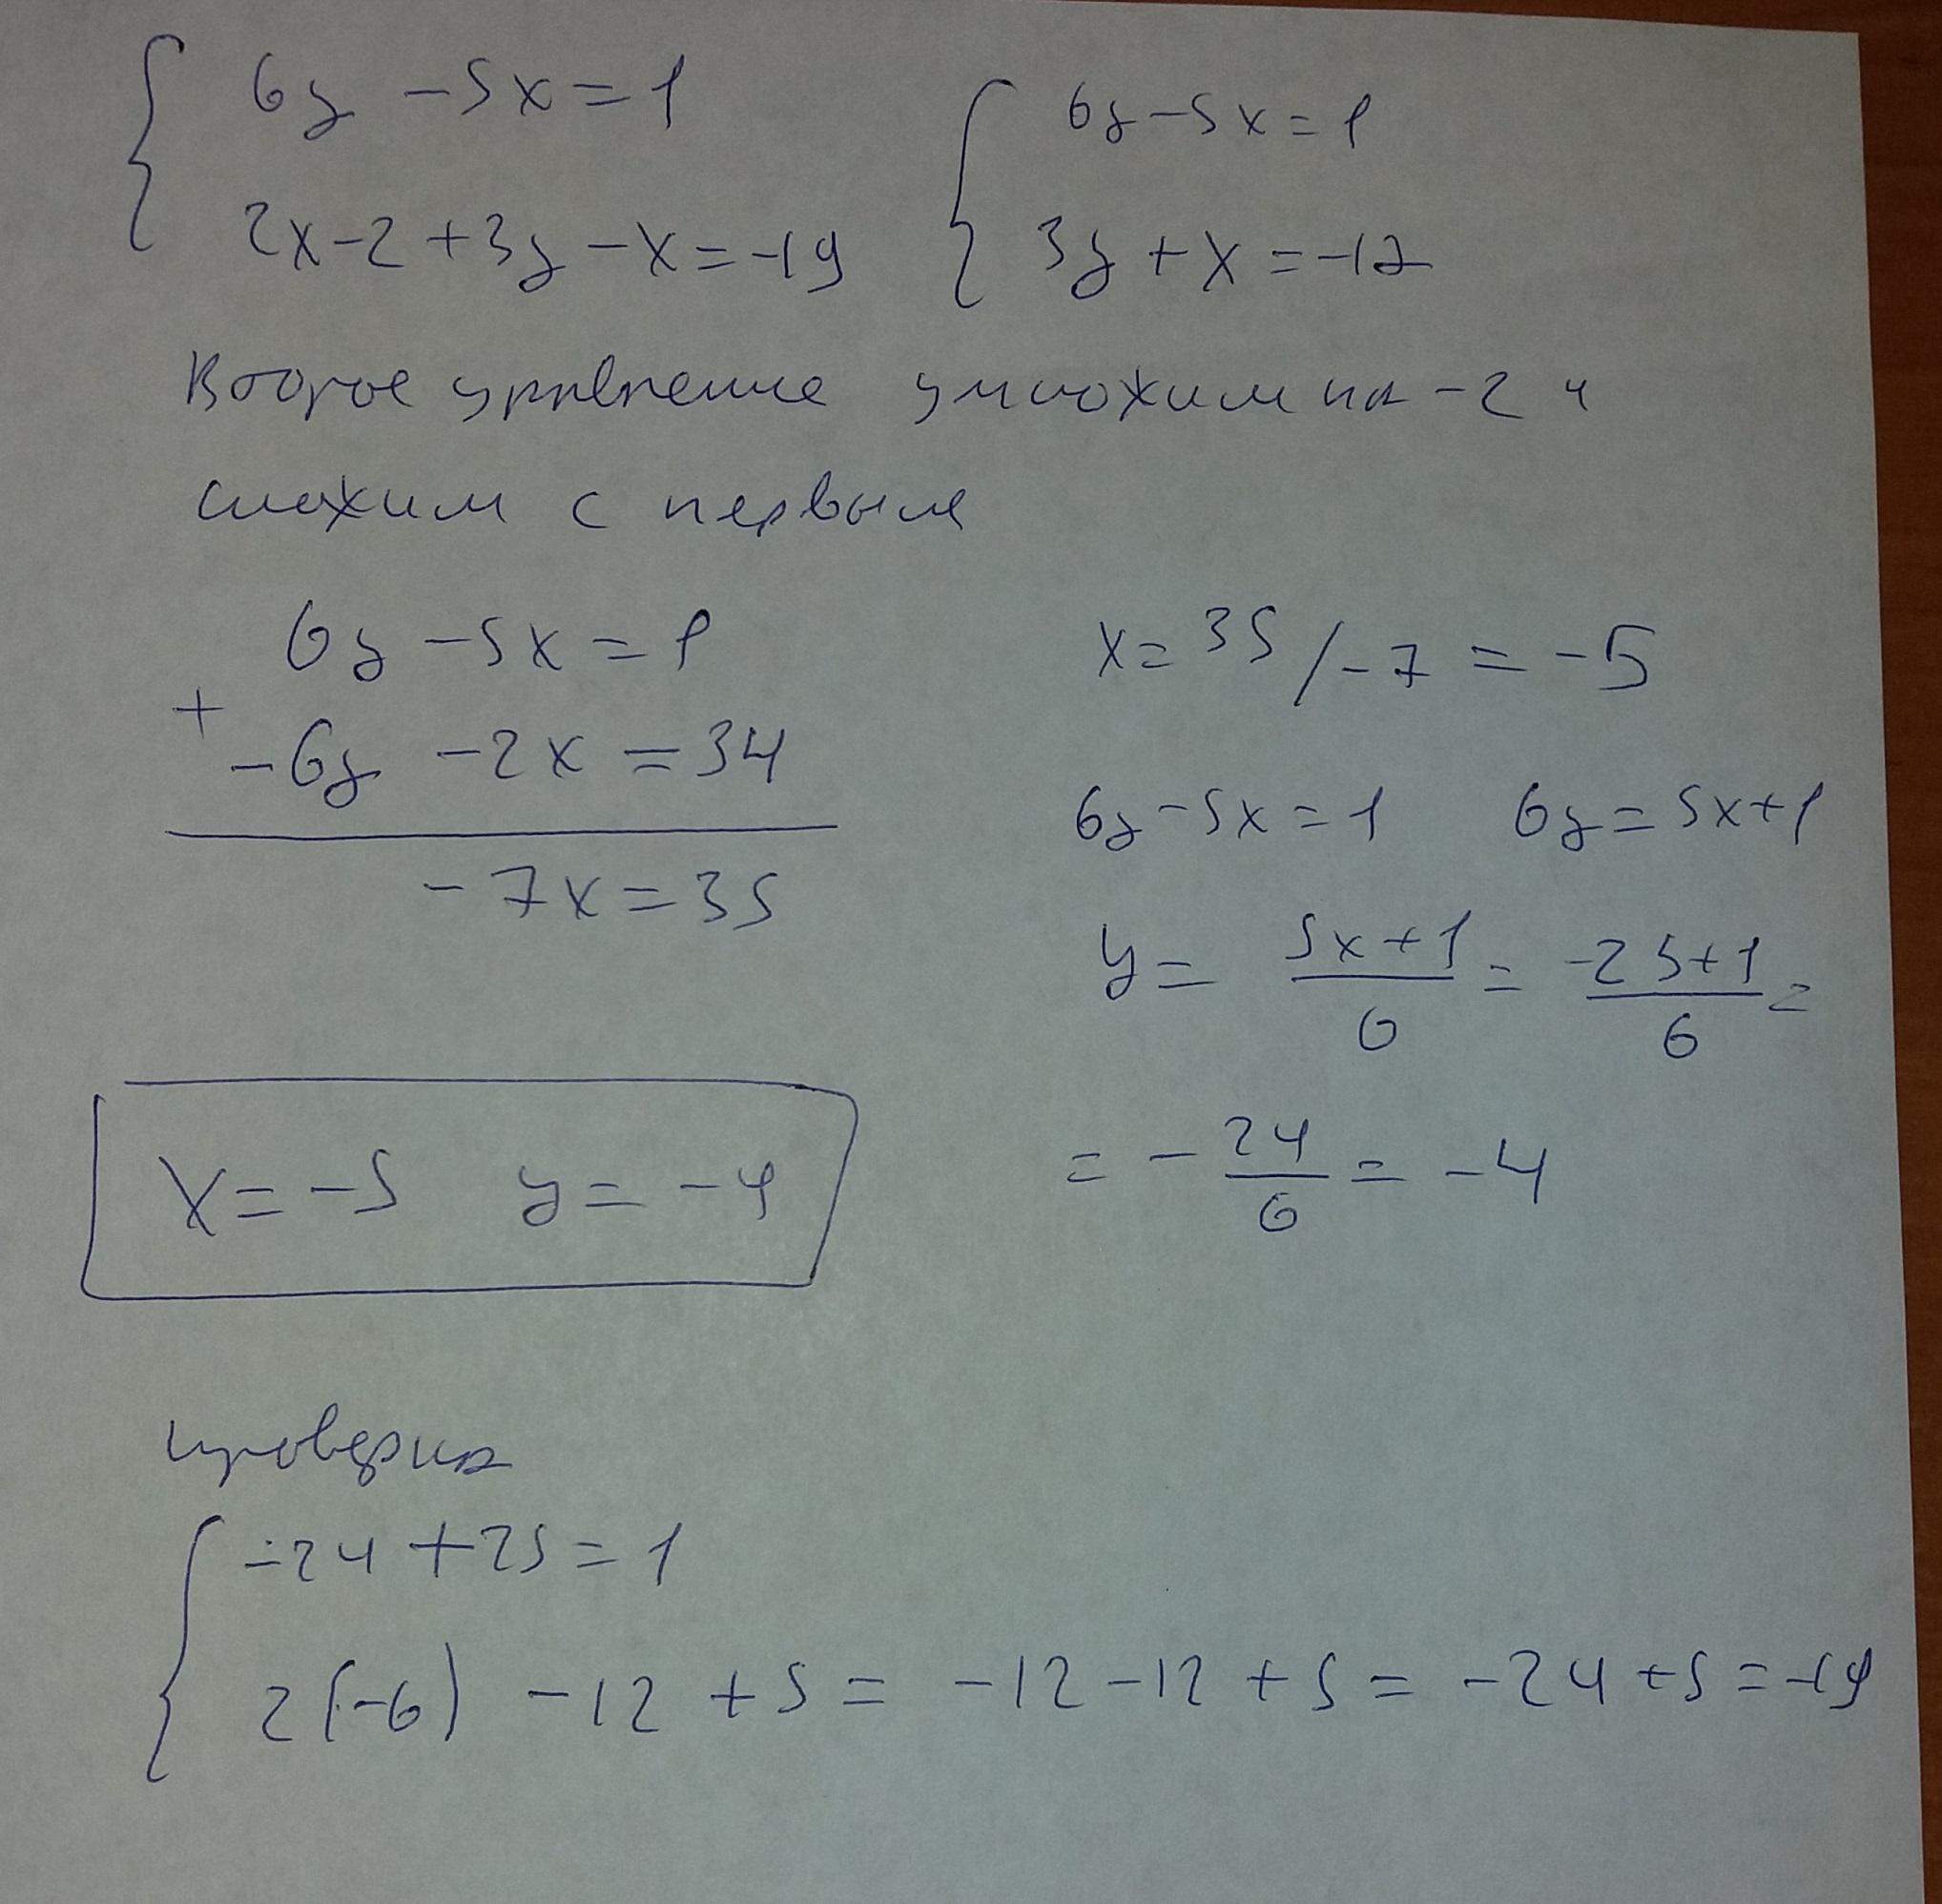 6y - 5x = 1
2x - 2 + 3y - x = -19
6y - 5x = 1
3y + x = -17
Второе уравнение умножим на -2 и
сложим с первым
6y - 5x = 1
+
-6y - 2x = 34
-7x = 35
x = 35 / -7 = -5
6y - 5x = 1 6y = 5x + 1
y = (5x + 1)/6 = (-25 + 1)/6 =
= - 24/6 = -4
x = -5 y = -4
проверка
-24 + 25 = 1
2(-6) - 12 + 5 = -12 - 12 + 5 = -24 + 5 = -19